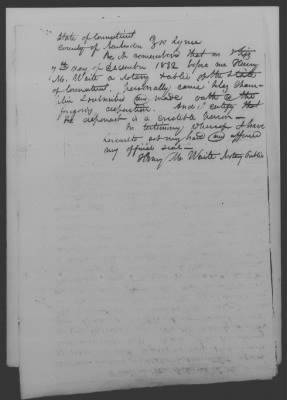 State of Connecticut
County of New London } ss Lyme
Be it remembered that on this
7th day of December 1832 before me Henry
M. Waite a Notary Public of the State
of Connecticut, personally came
and made oath to the
foregoing deposition. And I certify that
the deponent is a credible person—
In testimony whereof I have
hereunto set my hand and affixed
my official seal—
Henry M. Waite Notary Public